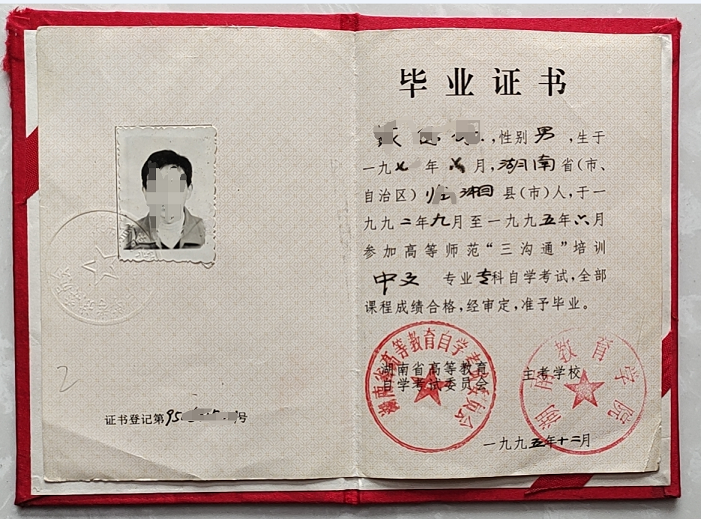 2
证书登记第95.号
毕业证书
,性别男,生于
一九七年月,湖南省(市、
自治区)临湘县(市)人,于一
九九二年九月至一九九五年六月
参加高等师范“三沟通”培训
中文专业专科自学考试,全部
课程成绩合格,经审定,准予毕业。
湖南省高等教育自学考试委员会
湖南省高等教育
自学考试委员会
主考学校
湖南教育学院
一九九五年十二月